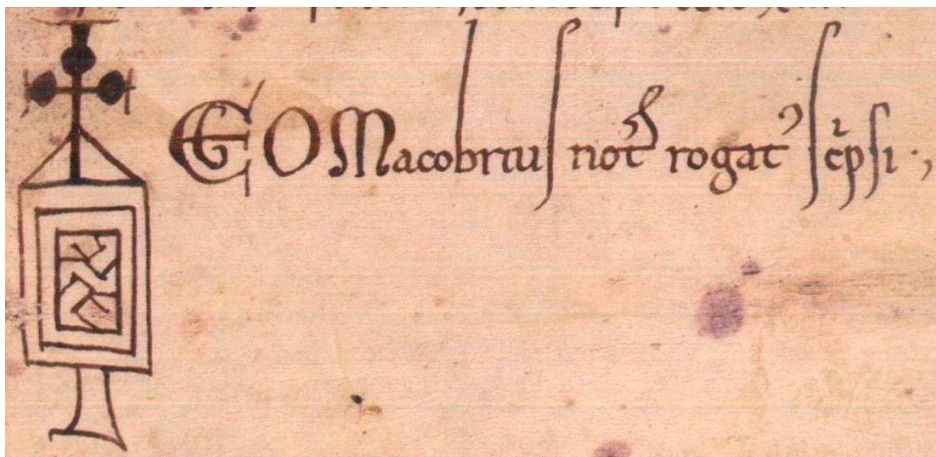 EGO Macobrius not rogat' scpsi